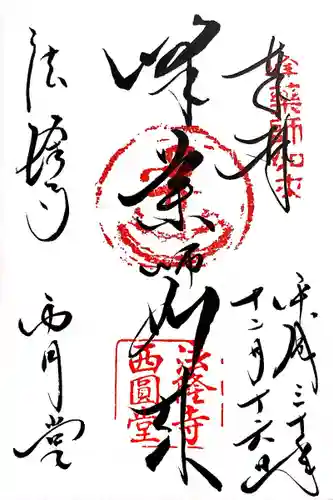 奉拝
峰薬師如来
平成三十年
十二月十六日
峰薬師如来
法隆寺
西圓堂
法隆寺
西円堂